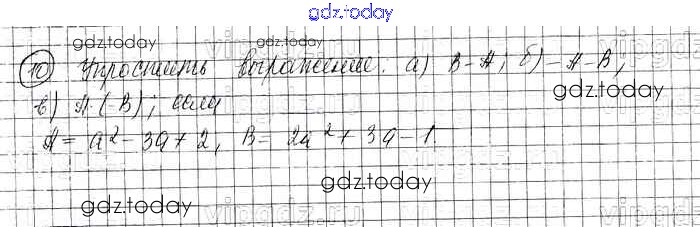 gdz.today
gdz.today gdz.today
10 Упростить выражение: а) B-A; б) -A-B,
gdz.today
в) A·(-B); если
A = a² - 3a + 2, B = 2a² + 3a - 1
gdz.today
gdz.today
vipgdz.ru